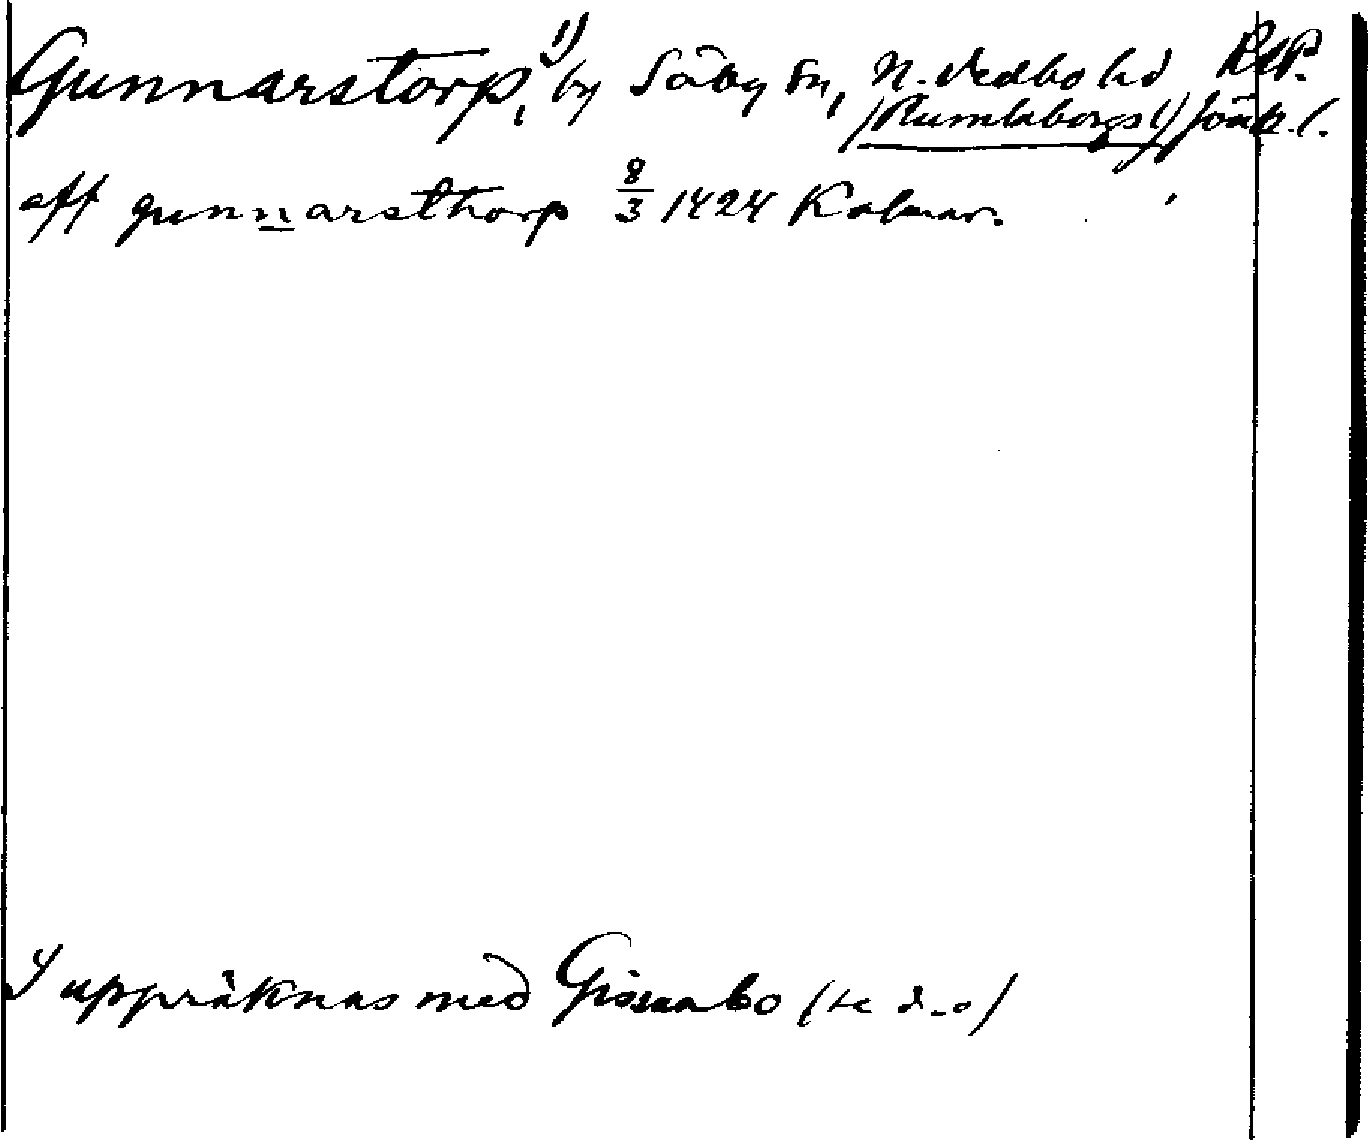 Gunnarstorp,¹⁾ by Säby sn, N. Vedbo hd RAP.
(Rumlaborgs l) Jönk. l.
aff gunnarsthorp 8/3 1424 Kalmar.
1) uppräknas med Gissabo (se d. o)